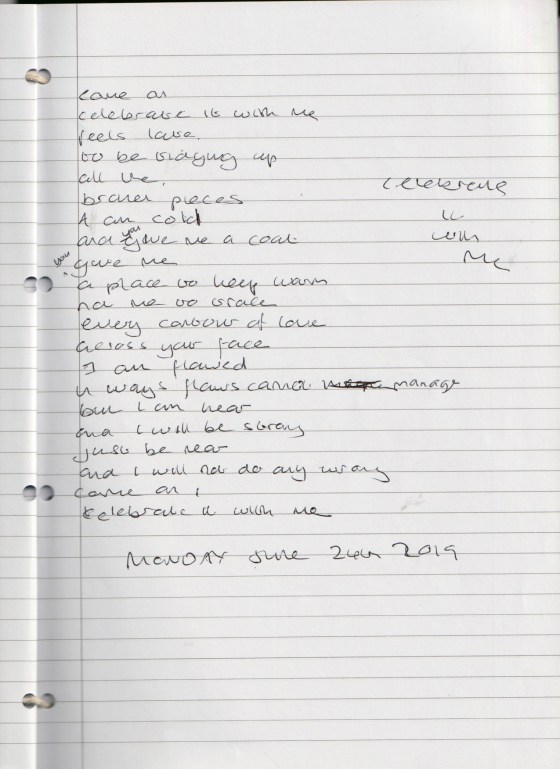 come on
celebrate it with me
feels love.
to be tidying up
all the.
broken pieces
I am cold
and you gave me a coat
you gave me
a place to keep warm
let me to trace
every contour of love
across your face
I am flawed
in ways flaws cannot manage
but I am near
and I will be strong
just be near
and I will not do any wrong
come on,
celebrate it with me
celebrate
it
with
me
MONDAY June 24th 2019